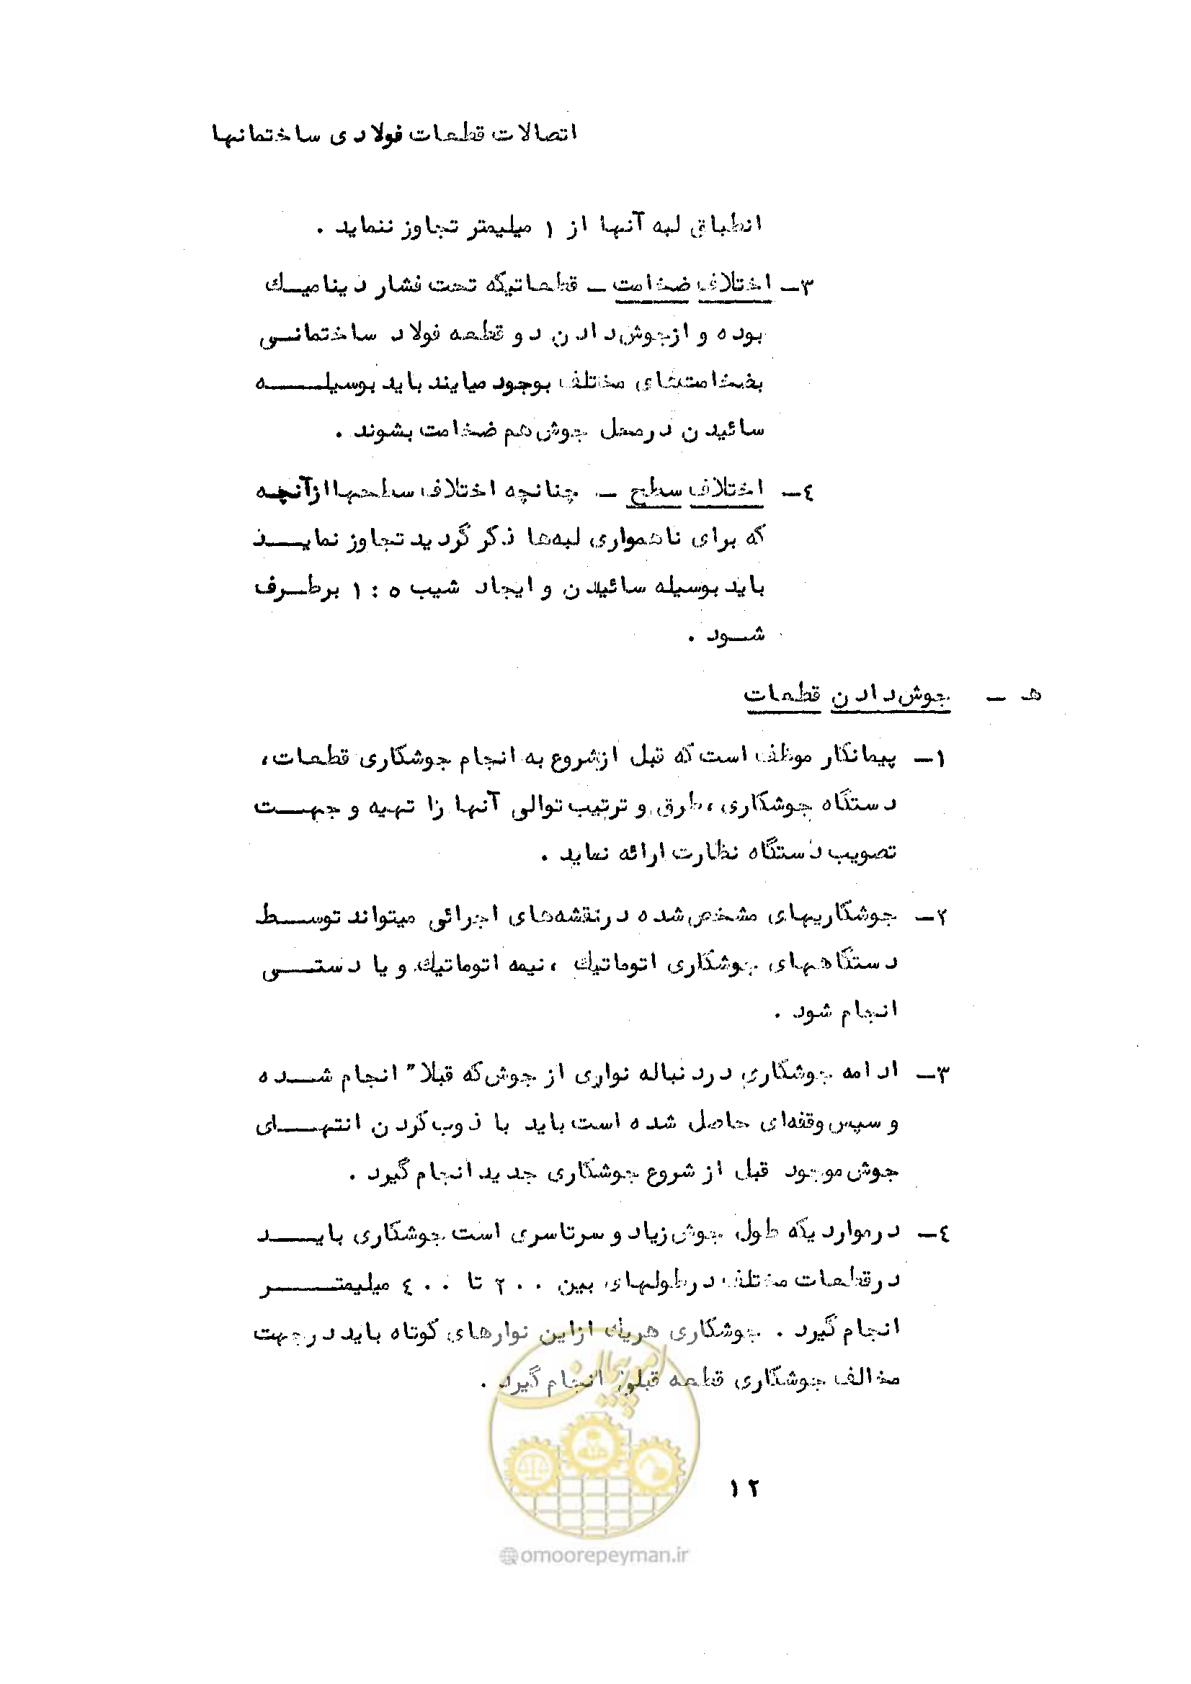 اتصالات قطعات فولادی ساختمانها
انطباق لبه آنها از ۱ میلیمتر تجاوز ننماید .
۳ــ اختلاف ضخامت ــ قطعاتیکه تحت فشار دینامیـك
بوده و ازجوش دادن دو قطعه فولاد ساختمانـی
بضخامتهای مختلف بوجود میایند باید بوسیلــــه
سائیدن درمحل جوش هم ضخامت بشوند .
٤ــ اختلاف سطح ــ چنانچه اختلاف سطحها ازآنچه
که برای ناهمواری لبه‌ها ذکر گردید تجاوز نمایـــد
باید بوسیله سائیدن و ایجاد شیب ۵ : ۱ برطــرف
شـــود .
هـ ــ جوش دادن قطعات
۱ــ پیمانکار موظف است که قبل ازشروع به انجام جوشکاری قطعات ،
دستگاه جوشکاری ، طرق و ترتیب توالی آنها را تهیه و جهـــت
تصویب دستگاه نظارت ارائه نماید .
۲ــ جوشکاریهای مشخص شده درنقشه‌های اجرائی میتواند توســط
دستگاههای جوشکاری اتوماتیك ، نیمه اتوماتیك و یا دستـــی
انجام شود .
۳ــ ادامه جوشکاری دردنباله نواری از جوش که قبلا" انجام شــده
و سپس وقفه‌ای حاصل شده است باید با ذوب کردن انتهـــای
جوش موجود قبل از شروع جوشکاری جدید انجام گیرد .
٤ــ درمواردیکه طول جوش زیاد و سرتاسری است جوشکاری بایـــد
درقطعات مختلف درطولهای بین ۲۰۰ تا ٤۰۰ میلیمتـــــر
انجام گیرد . جوشکاری هریك ازاین نوارهای کوتاه باید درجهت
مخالف جوشکاری قطعه قبلی انجام گیرد .
امور پیمان
۱۲
@omoorepeyman.ir